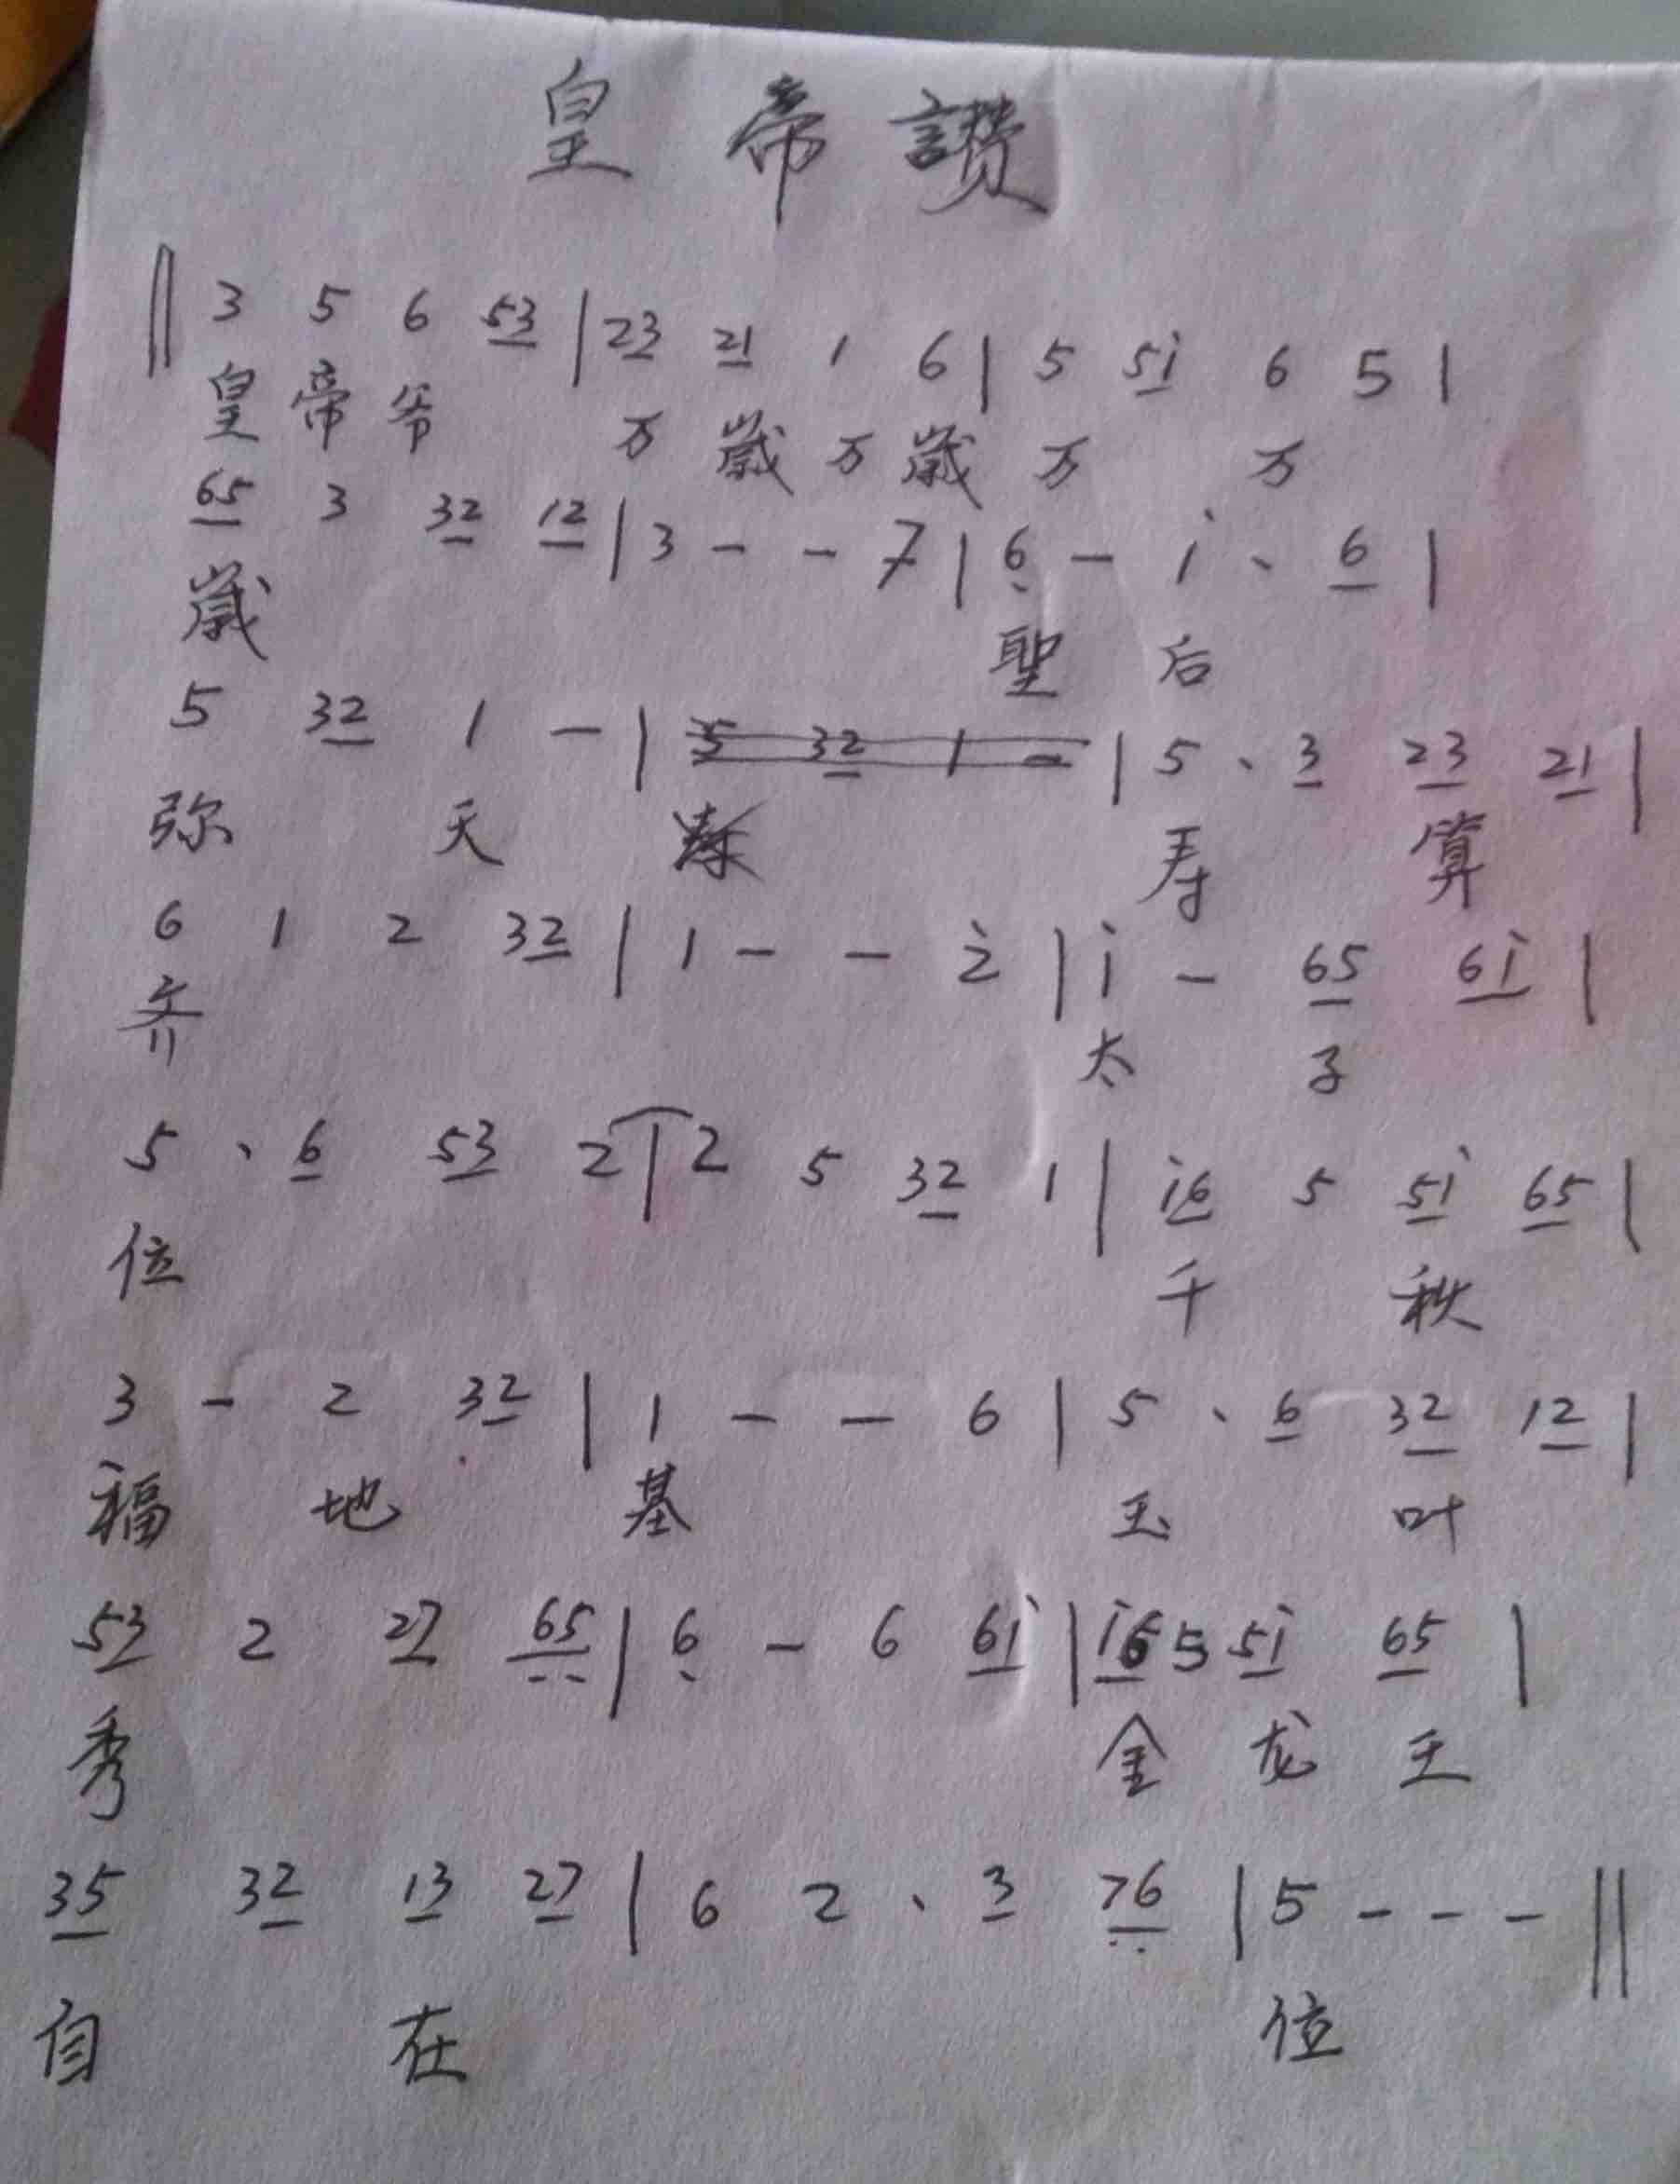 皇帝讃
‖ 3 5 6 53 | 23 21 1 6 | 5 5i 6 5 |
皇 帝 爷 万 歲 万 歲 万 万
65 3 32 12 | 3 - - 7 | 6 - i · 6 |
歲 聖 后
5 32 1 - | 35 32 1 - | 5 · 3 23 21 |
弥 天 寿 算
6 1 2 32 | 1 - - 2 | i - 65 6i |
齐 太 子
5 · 6 53 2 | 2 5 32 1 | i6 5 5i 65 |
位 千 秋
3 - 2 32 | 1 - - 6 | 5 · 6 32 12 |
福 地 基 玉 叶
53 2 27 65 | 6 - 6 6i | i6 5 5i 65 |
秀 金 龙 王
35 32 13 27 | 6 2 · 3 76 | 5 - - - ‖
自 在 位